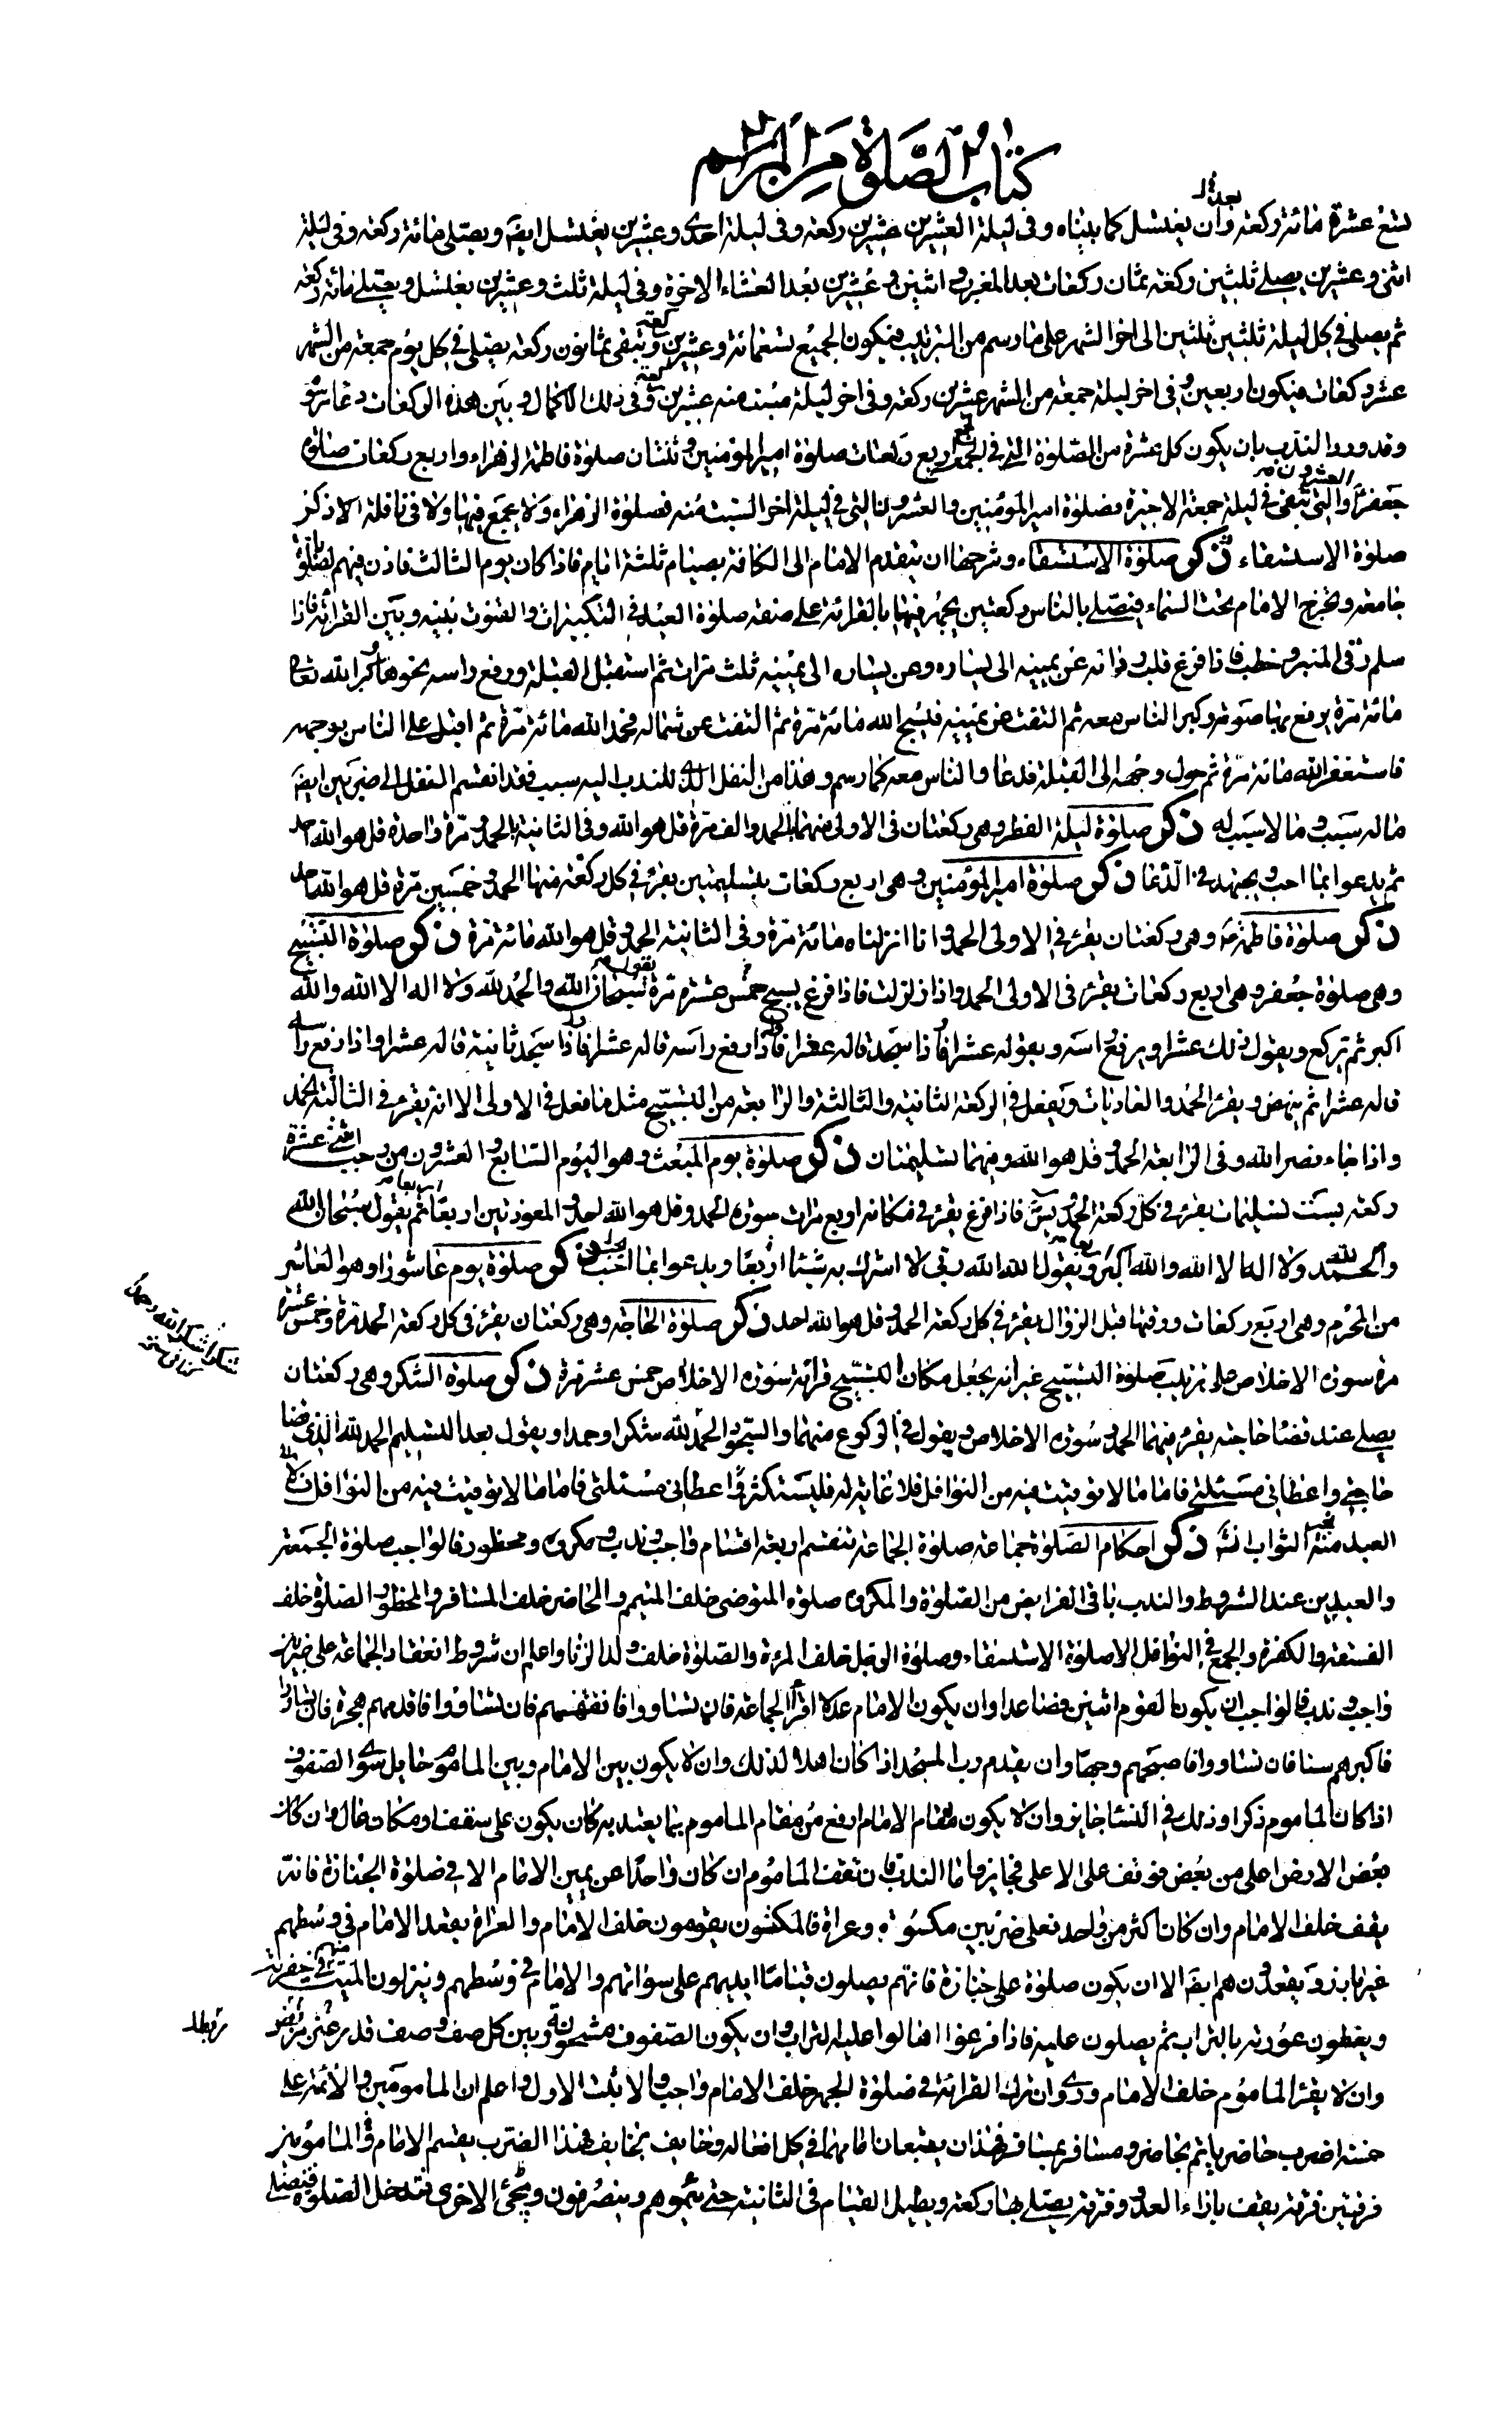 كتاب الصلوة من المراسم
تسع عشرة مائة ركعة بعد ان يغتسل كما بيناه وفى ليلة العشرين عشرين ركعة وفى ليلة احدى وعشرين يغتسل ايضا ويصلى مائة ركعة وفى ليلة
اثنى وعشرين يصلى ثلثين ركعة ثمان ركعات بعد المغرب واثنين وعشرين بعد العشاء الاخرة وفى ليلة ثلث وعشرين يغتسل ويصلى مائة ركعة
ثم يصلى فى كل ليلة ثلثين ثلثين الى اخر الشهر على ما رسم من الترتيب فيكون الجميع تسعمائة وعشرين ركعة وتبقى ثمانون ركعة يصلى فى كل يوم جمعة من الشهر
عشر ركعات فيكون اربعين وفى اخر ليلة جمعة من الشهر عشرين ركعة وفى اخر ليلة سبت منه عشرين ركعة وفى ذلك الاكمال وبين هذه الركعات دعاء مرو
وقد ورد الندب بان يكون كل عشرة من الصلوة التى فى الجمع اربع ركعات صلوة امير المؤمنين وثنتان صلوة فاطمة الزهراء واربع ركعات صلوة
جعفر والعشرون التى تبقى فى ليلة جمعة الاخيرة فصلوة امير المؤمنين والعشرون التى فى ليلة اخر السبت منه فصلوة الزهراء ولا يجمع فيها ولا فى نافلة الا ذكر
صلوة الاستسقاء ذكر صلوة الاستسقاء وشرحها ان يتقدم الامام الى الكافة بصيام ثلثة ايام فاذا كان يوم الثالث فاذن فيهم بالصلوة
جامعة ويخرج الامام تحت السماء فيصلى بالناس ركعتين يجهر فيها بالقرائة على صفة صلوة العيد فى التكبيرات والقنوت بينه وبين القرائة فاذا
سلم رقى المنبر وخطب فاذا فرغ قلب ردائه عن يمينه الى يساره وعن يساره الى يمينه ثلث مرات ثم استقبل القبلة ورفع راسه نحوها وكبر الله تعالى
مائة مرة يرفع بها صوته وكبر الناس معه ثم التفت عن يمينه فيسبح الله مائة مرة ثم التفت عن شماله فحمد الله مائة مرة ثم اقبل على الناس بوجهه
فاستغفر الله مائة مرة ثم حول وجهه الى القبلة فدعا والناس معه كما رسم وهذا من النفل الذى للندب اليه سبب فقد انقسم النفل الى ضربين ايضا
ما له سبب وما لا سبب له ذكر صلوة ليلة الفطر وهى ركعتان فى الاولى منهما بالحمد والف مرة قل هو الله وفى الثانية الحمد ومرة واحدة قل هو الله احد
ثم يدعوا بما احب ويجتهد فى الدعاء ذكر صلوة امير المؤمنين وهى اربع ركعات بتسليمتين يقرء فى كل ركعة منها الحمد وخمسين مرة قل هو الله احد
ذكر صلوة فاطمة وهى ركعتان يقرء فى الاولى الحمد وانا انزلناه مائة مرة وفى الثانية الحمد وقل هو الله مائة مرة ذكر صلوة التسبيح
وهى صلوة جعفر وهى اربع ركعات يقرء فى الاولى الحمد واذا زلزلت فاذا فرغ يسبح خمس عشرة مرة يقول سبحان الله والحمد لله ولا اله الا الله والله
اكبر ثم يركع ويقول ذلك عشرا ويرفع راسه ويقوله عشرا فاذا سجد قاله عشرا فاذا رفع راسه قاله عشرا فاذا سجد ثانية قاله عشرا واذا رفع راسه
قاله عشرا ثم ينهض ويقرء الحمد والعاديات ويفعل فى الركعة الثانية والثالثة والرابعة من التسبيح مثل ما فعل فى الاولى الا انه يقرء فى الثالثة الحمد
واذا جاء نصر الله وفى الرابعة الحمد وقل هو الله وفيهما تسليمتان ذكر صلوة يوم المبعث وهو اليوم السابع والعشرون من رجب اثنى عشرة
ركعة بست تسليمات يقرء فى كل ركعة الحمد ويس فاذا فرغ يقرء فى مكانه اربع مرات سورة الحمد وقل هو الله احد والمعوذتين اربعا ثم يقول سبحان الله
والحمد لله ولا اله الا الله والله اكبر اربعا ويقول الله الله ربى لا اشرك به شيئا اربعا ويدعوا بما احب ذكر صلوة يوم عاشورا وهو العاشر
من المحرم وهى اربع ركعات ووقتها قبل الزوال يقرء فى كل ركعة الحمد وقل هو الله احد ذكر صلوة الحاجة وهى ركعتان يقرء فى كل ركعة الحمد مرة وخمس عشرة
مرة سورة الاخلاص على ترتيب صلوة التسبيح غير انه يجعل مكان التسبيح قرائة سورة الاخلاص خمس عشر مرة ذكر صلوة الشكر وهى ركعتان
يصلى عند قضاء حاجته يقرء فيهما الحمد وسورة الاخلاص ويقول فى الركوع منهما والسجود الحمد لله شكرا وحمدا ويقول بعد التسليم الحمد لله الذى قضا
حاجتى واعطانى مسئلتى فاما ما لا توقيت فيه من النوافل فلا غاية له فليستكثر
العبد منه الثواب ذكر احكام الصلوة جماعة صلوة الجماعة تنقسم اربعة اقسام واجب وندب ومكروه ومحظور فالواجب صلوة الجمعة
والعيدين عند الشروط والندب باقى الفرايض من الصلوة والمكروه صلوة المتوضى خلف المتيمم والحاضر خلف المسافر والمحظور الصلوة خلف
الفسقة والكفرة والجمع فى النوافل الا صلوة الاستسقاء وصلوة الرجل خلف المرءة والصلوة خلف ولد الزنا واعلم ان شروط انعقاد الجماعة على ضربين
واجب وندب فالواجب ان يكون القوم اثنين فصاعدا وان يكون الامام عدلا اقرأ الجماعة فان تساووا فافقههم فان تساووا فاقدمهم هجرة فان تساووا
فاكبرهم سنا فان تساووا فاصبحهم وجها وان يقدم رب المسجد اذا كان اهلا لذلك وان لا يكون بين الامام وبين الماموم حايل سوى الصفوف
اذا كان الماموم ذكرا وذلك فى النسا جايز وان لا يكون مقام الامام ارفع من مقام الماموم بما يعتد به كان يكون على سقف او مكان عال وان كان
بعض الارض اعلى من بعض فوقف على الاعلى فجايز واما الندب فان تقف الماموم ان كان واحدا عن يمين الامام الا فى صلوة الجنازة فانه
يقف خلف الامام وان كان اكثر من واحد فعلى ضربين مكسوة وعراة فالمكسون يقومون خلف الامام والعراة يقعد الامام فى وسطهم
غير بارز ويقعدون هم ايضا الا ان يكون صلوة على جنازة فانهم يصلون قياما ايديهم على سوأتهم والامام فى وسطهم وينزلون الميت فى حفرته
ويغطون عورته بالتراب ثم يصلون عليه فاذا فرغوا اهالوا عليه التراب وان يكون الصفوف مشحونة وبين كل صف وصف قدر
وان لا يقرء الماموم خلف الامام وروى ان ترك القرائة فى صلوة الجهر خلف الامام واجب والاثبت الاول واعلم ان المامومين والائمة على
خمسة اضرب حاضر ياتم بحاضر ومسافر بمسافر فهذان يتبعان امامهما فى كل افعاله وخايف بخايف فهذا الضرب يقسم الامام فى المامومين
فرقتين فرقة يقف بازاء العدو وفرقة يصلى بها ركعة ويطيل القيام فى الثانية حتى يتموهم وينصرفون ويجئ الاخرى فتدخل الصلوة فيصلى